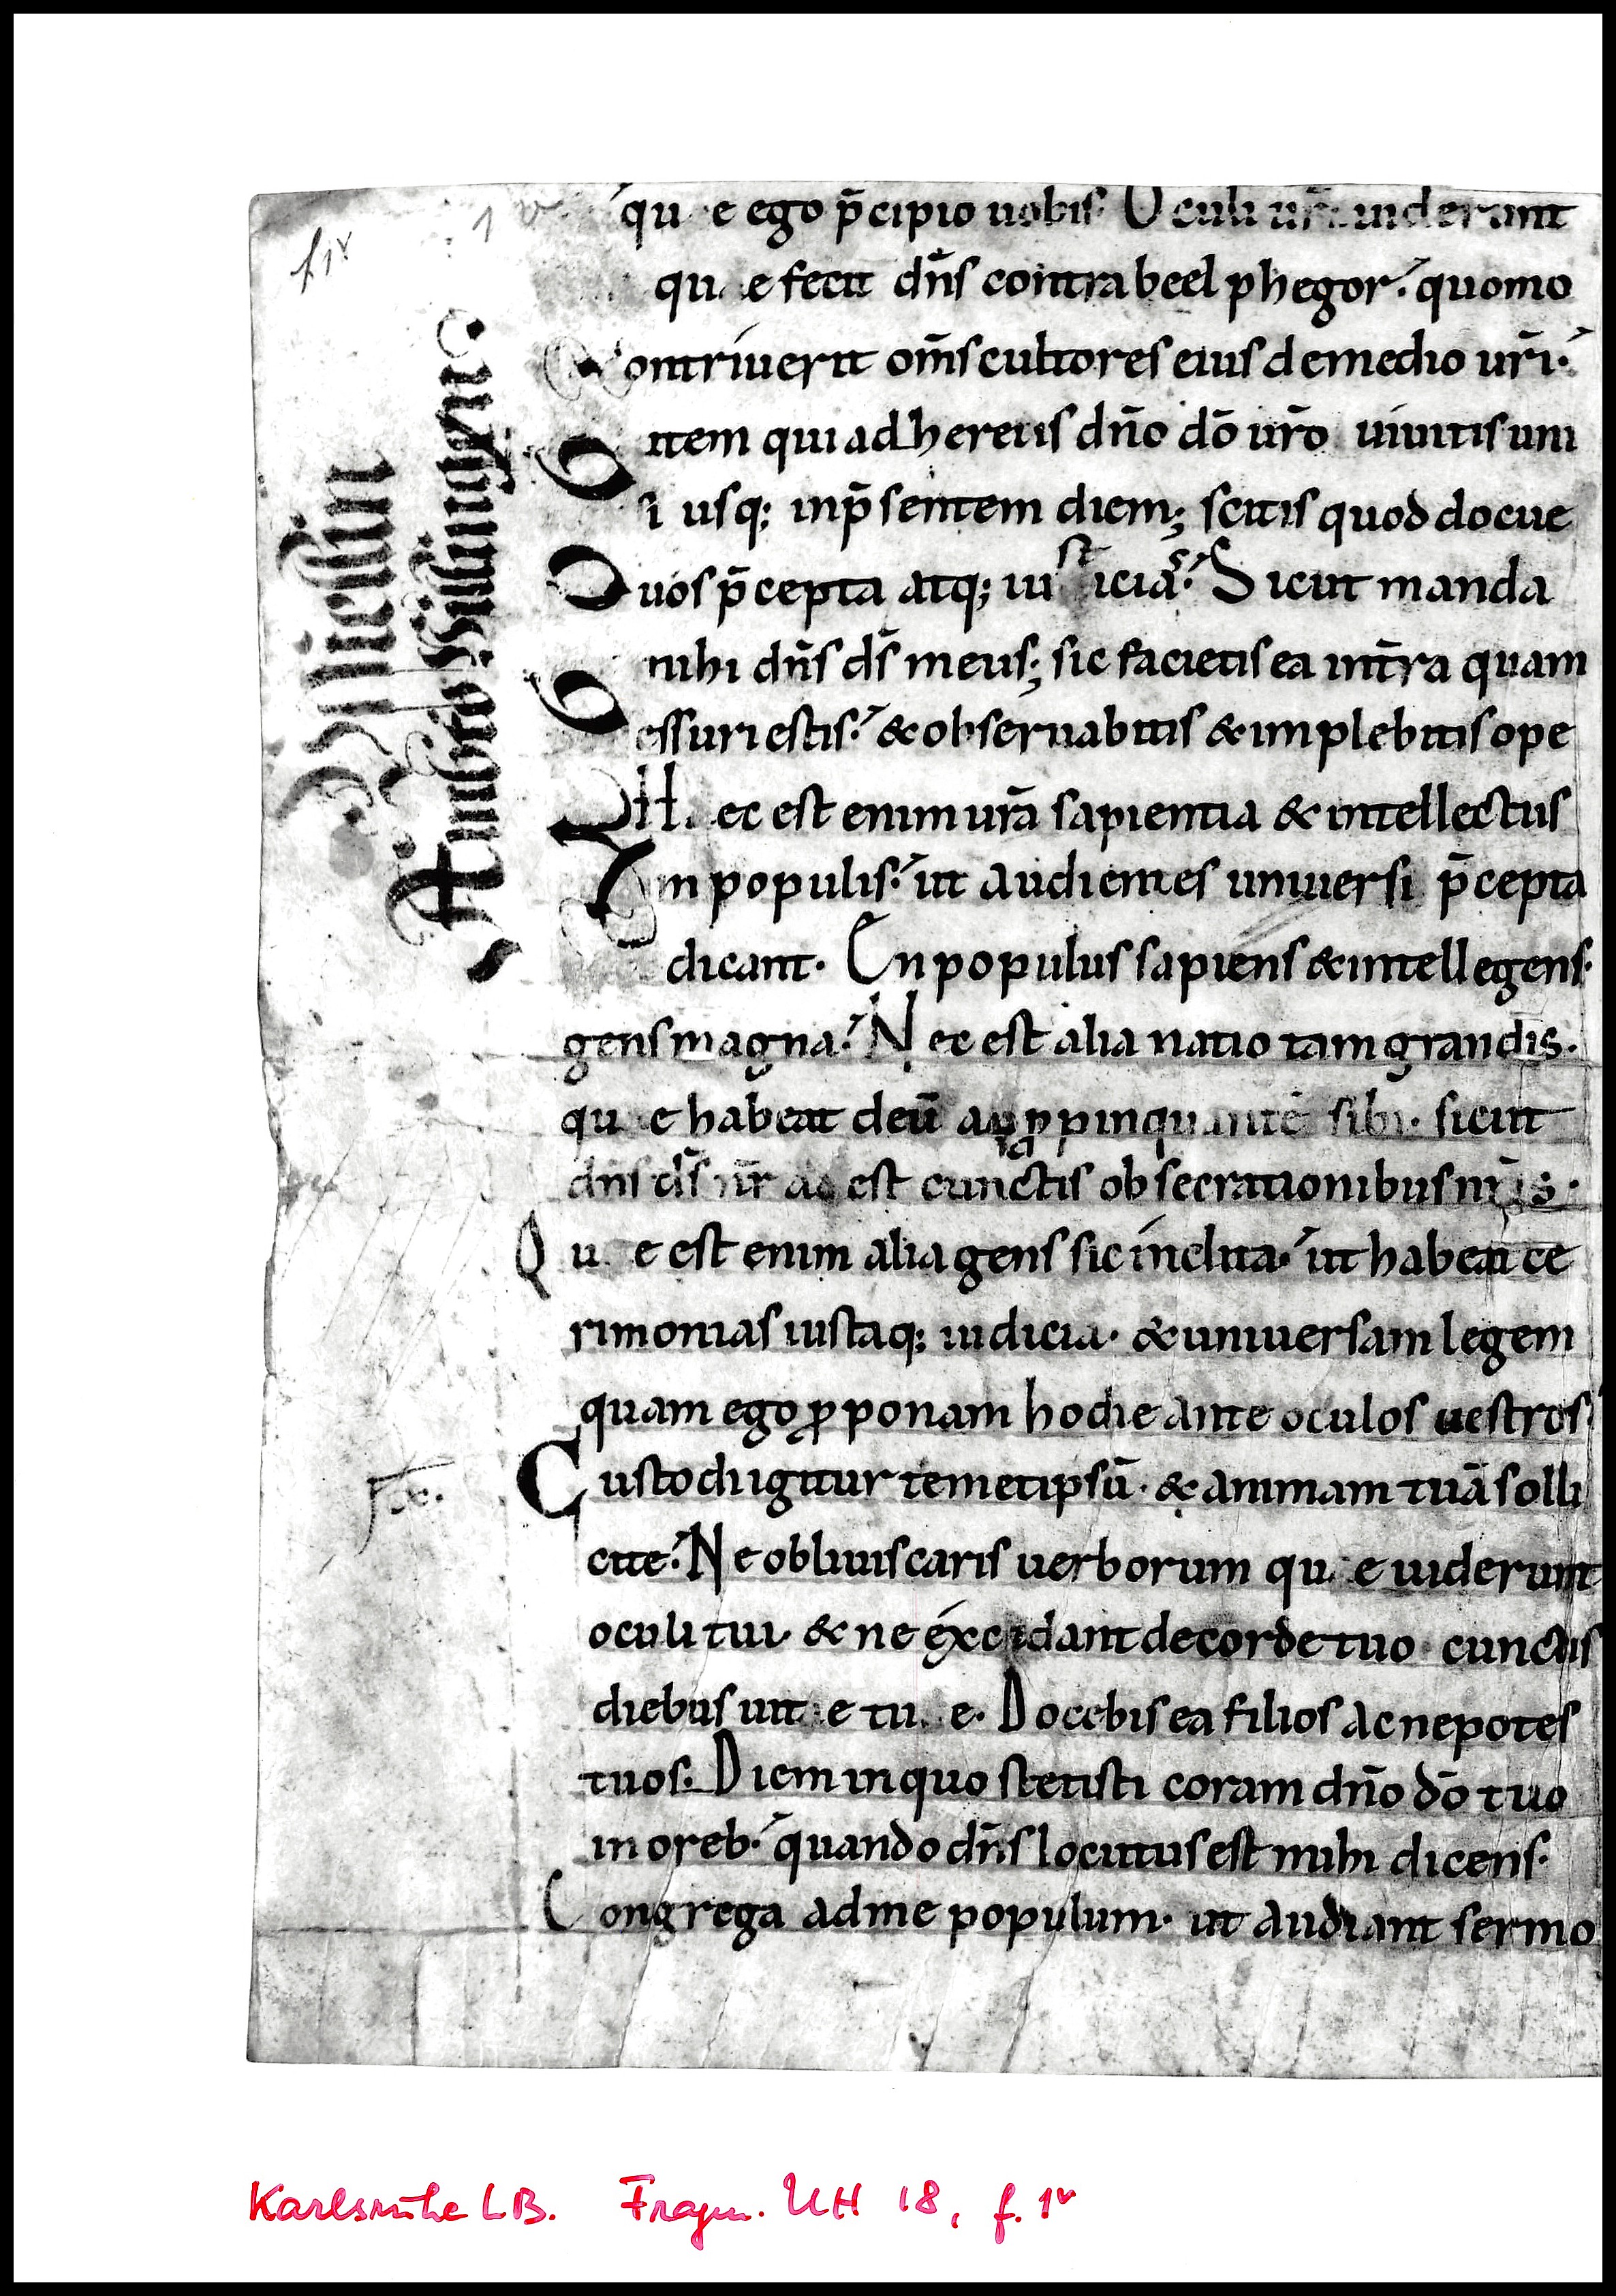 f 1v
1 v
que ego p̄cipio uobis. Oculi ur̄i uiderunt
que fecit dn̄s contra beel phegor. quomo
contriuerit om̄s cultores eius de medio ur̄i.
item qui adheretis dn̄o dō ur̄o uiuitis uni
i usq; in p̄sentem diem; scitis quod docue
uos p̄cepta atq; iusticias. Sicut manda
mihi dn̄s ds̄ meus; sic facietis ea in tr̄ra quam
essuri estis. & obseruabitis & implebitis ope
Hec est enim ur̄a sapientia & intellectus
m populis. ut audientes uniuersi p̄cepta
dicant. En populus sapiens & intellegens.
gens magna. Nec est alia natio tam grandis.
que habeat deū appropinquantē sibi. sicut
dn̄s ds̄ nr̄ adest cunctis obsecrationibus nr̄is.
Que est enim alia gens sic inclita. ut habeat ce
rimonias iustaq; iudicia. & uniuersam legem
quam ego ꝓponam hodie ante oculos uestros
Custodi igitur temetipsū. & animam tuā solli
cite. Ne obliuiscaris uerborum que uiderunt
oculi tui. & ne excidant de corde tuo cunctis
diebus uite tue. Docebis ea filios ac nepotes
tuos. Diem in quo stetisti coram dn̄o dō tuo
in oreb. quando dn̄s locutus est mihi dicens.
Congrega ad me populum. ut audiant sermo
Karlsruhe LB. Fragm. UH 18, f. 1v